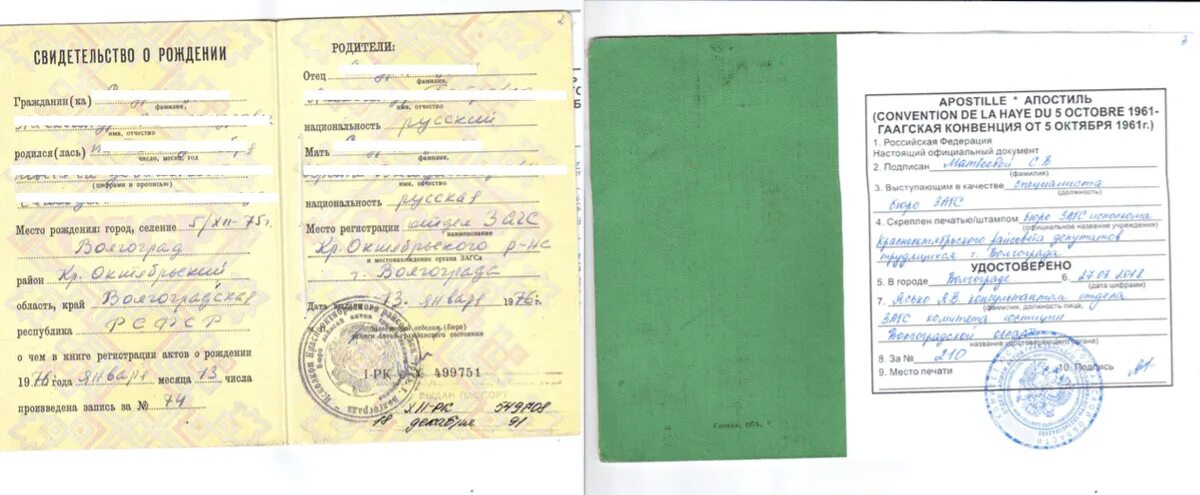 2
СВИДЕТЕЛЬСТВО О РОЖДЕНИИ
Гражданин(ка)
фамилия,
имя, отчество
родился(лась)
число, месяц, год
(цифрами и прописью)
Место рождения: город, селение 5/XII-75г.
Волгоград
район Кр. Октябрьский
область, край Волгоградская
республика РСФСР
о чем в книге регистрации актов о рождении
1976 года января месяца 13 числа
произведена запись за № 74
РОДИТЕЛИ:
Отец
фамилия,
имя, отчество
национальность русский
Мать
фамилия,
имя, отчество
национальность русская
Место регистрации отдел ЗАГС
наименование
Кр. Октябрьского р-на
и местонахождение органа ЗАГСа
г. Волгограда
Дата 13 января 1976г.
Заведующий отделом (бюро)
записи актов гражданского состояния
I-РК № 499751
ВЫДАН ПАСПОРТ
XII-РК 549808
18 декабря 91
Гознак. 1973.
3
APOSTILLE * АПОСТИЛЬ
(CONVENTION DE LA HAYE DU 5 OCTOBRE 1961-
ГААГСКАЯ КОНВЕНЦИЯ ОТ 5 ОКТЯБРЯ 1961г.)
1. Российская Федерация
Настоящий официальный документ
2. Подписан Матвеевой С В
(фамилия)
3. Выступающим в качестве специалиста
(должность)
бюро ЗАГС
4. Скреплен печатью/штампом бюро ЗАГС исполкома
(официальное название учреждения)
Краснооктябрьского райсовета депутатов
трудящихся г. Волгограда
УДОСТОВЕРЕНО
5. В городе Волгограде 6. 27.03 2018
(дата цифрами)
7. Ясько А.В. консультантом отдела
(фамилия, должность лица,
ЗАГС комитета юстиции
Волгоградской области
название удостоверяющего органа)
8. За № 210
9. Место печати 10. Подпись